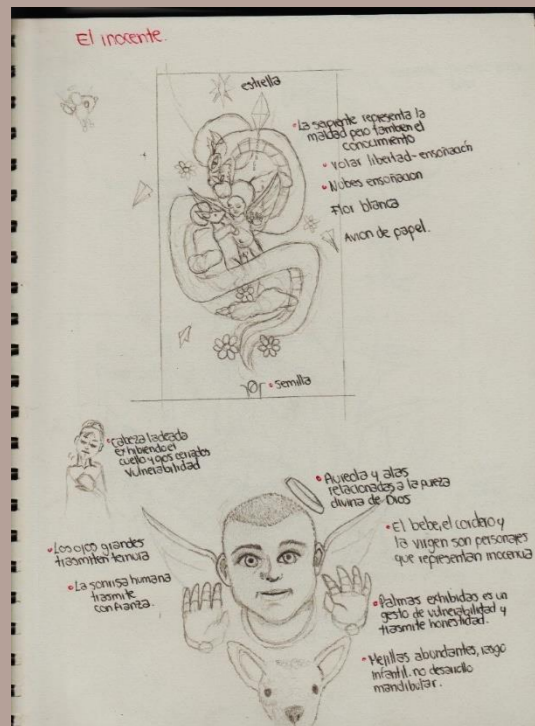 El inocente.
estrella
•La serpiente representa la
maldad pero tambien el
conocimiento
• volar libertad-ensoñacion
• Nubes ensoñacion
Flor blanca
Avion de papel.
• semilla
•cabeza ladeada
exhibiendo el
cuello y ojos cerrados
vulnerabilidad
• Aureola y alas
relacionadas a la pureza
divina de Dios
• El bebe, el cordero y
la virgen son personajes
que representan inocencia
•Los ojos grandes
trasmiten ternura
• La sonrisa humana
trasmite
confianza.
•Palmas exhibidas es un
gesto de vulnerabilidad y
trasmite honestidad.
•Mejillas abundantes, rasgo
infantil. no desarrollo
mandibular.